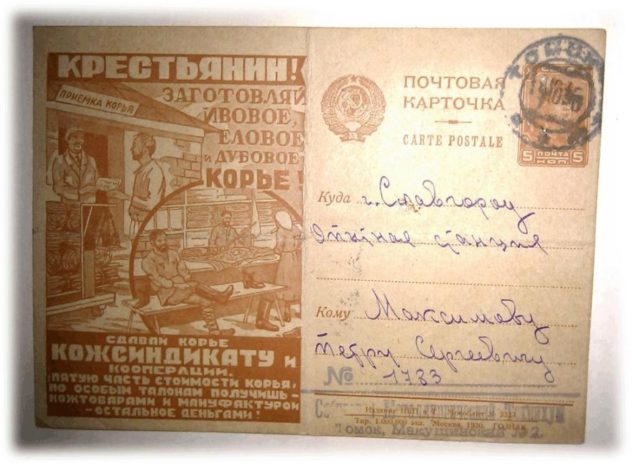 КРЕСТЬЯНИН!
ПРИЕМКА КОРЬЯ
ЗАГОТОВЛЯЙ
ИВОВОЕ,
ЕЛОВОЕ,
И ДУБОВОЕ
КОРЬЕ!
СДАВАЙ КОРЬЕ
КОЖСИНДИКАТУ И
КООПЕРАЦИИ.
ПЯТУЮ ЧАСТЬ СТОИМОСТИ КОРЬЯ,
ПО ОСОБЫМ ТАЛОНАМ ПОЛУЧИШЬ
КОЖТОВАРАМИ И МАНУФАКТУРОЙ
—ОСТАЛЬНОЕ ДЕНЬГАМИ!
ПОЧТОВАЯ
КАРТОЧКА
CARTE POSTALE
ТОМСК
5 ПОЧТА 5
КОП.
Куда г. Славгород
Опытная станция
Кому Максимову
Петру Сергеевичу
№ 1783
Издание НКПиТ
Тир. 1.000.000 экз. Москва, 1930. ГОЗНАК
Томск, Макушинская № 2.